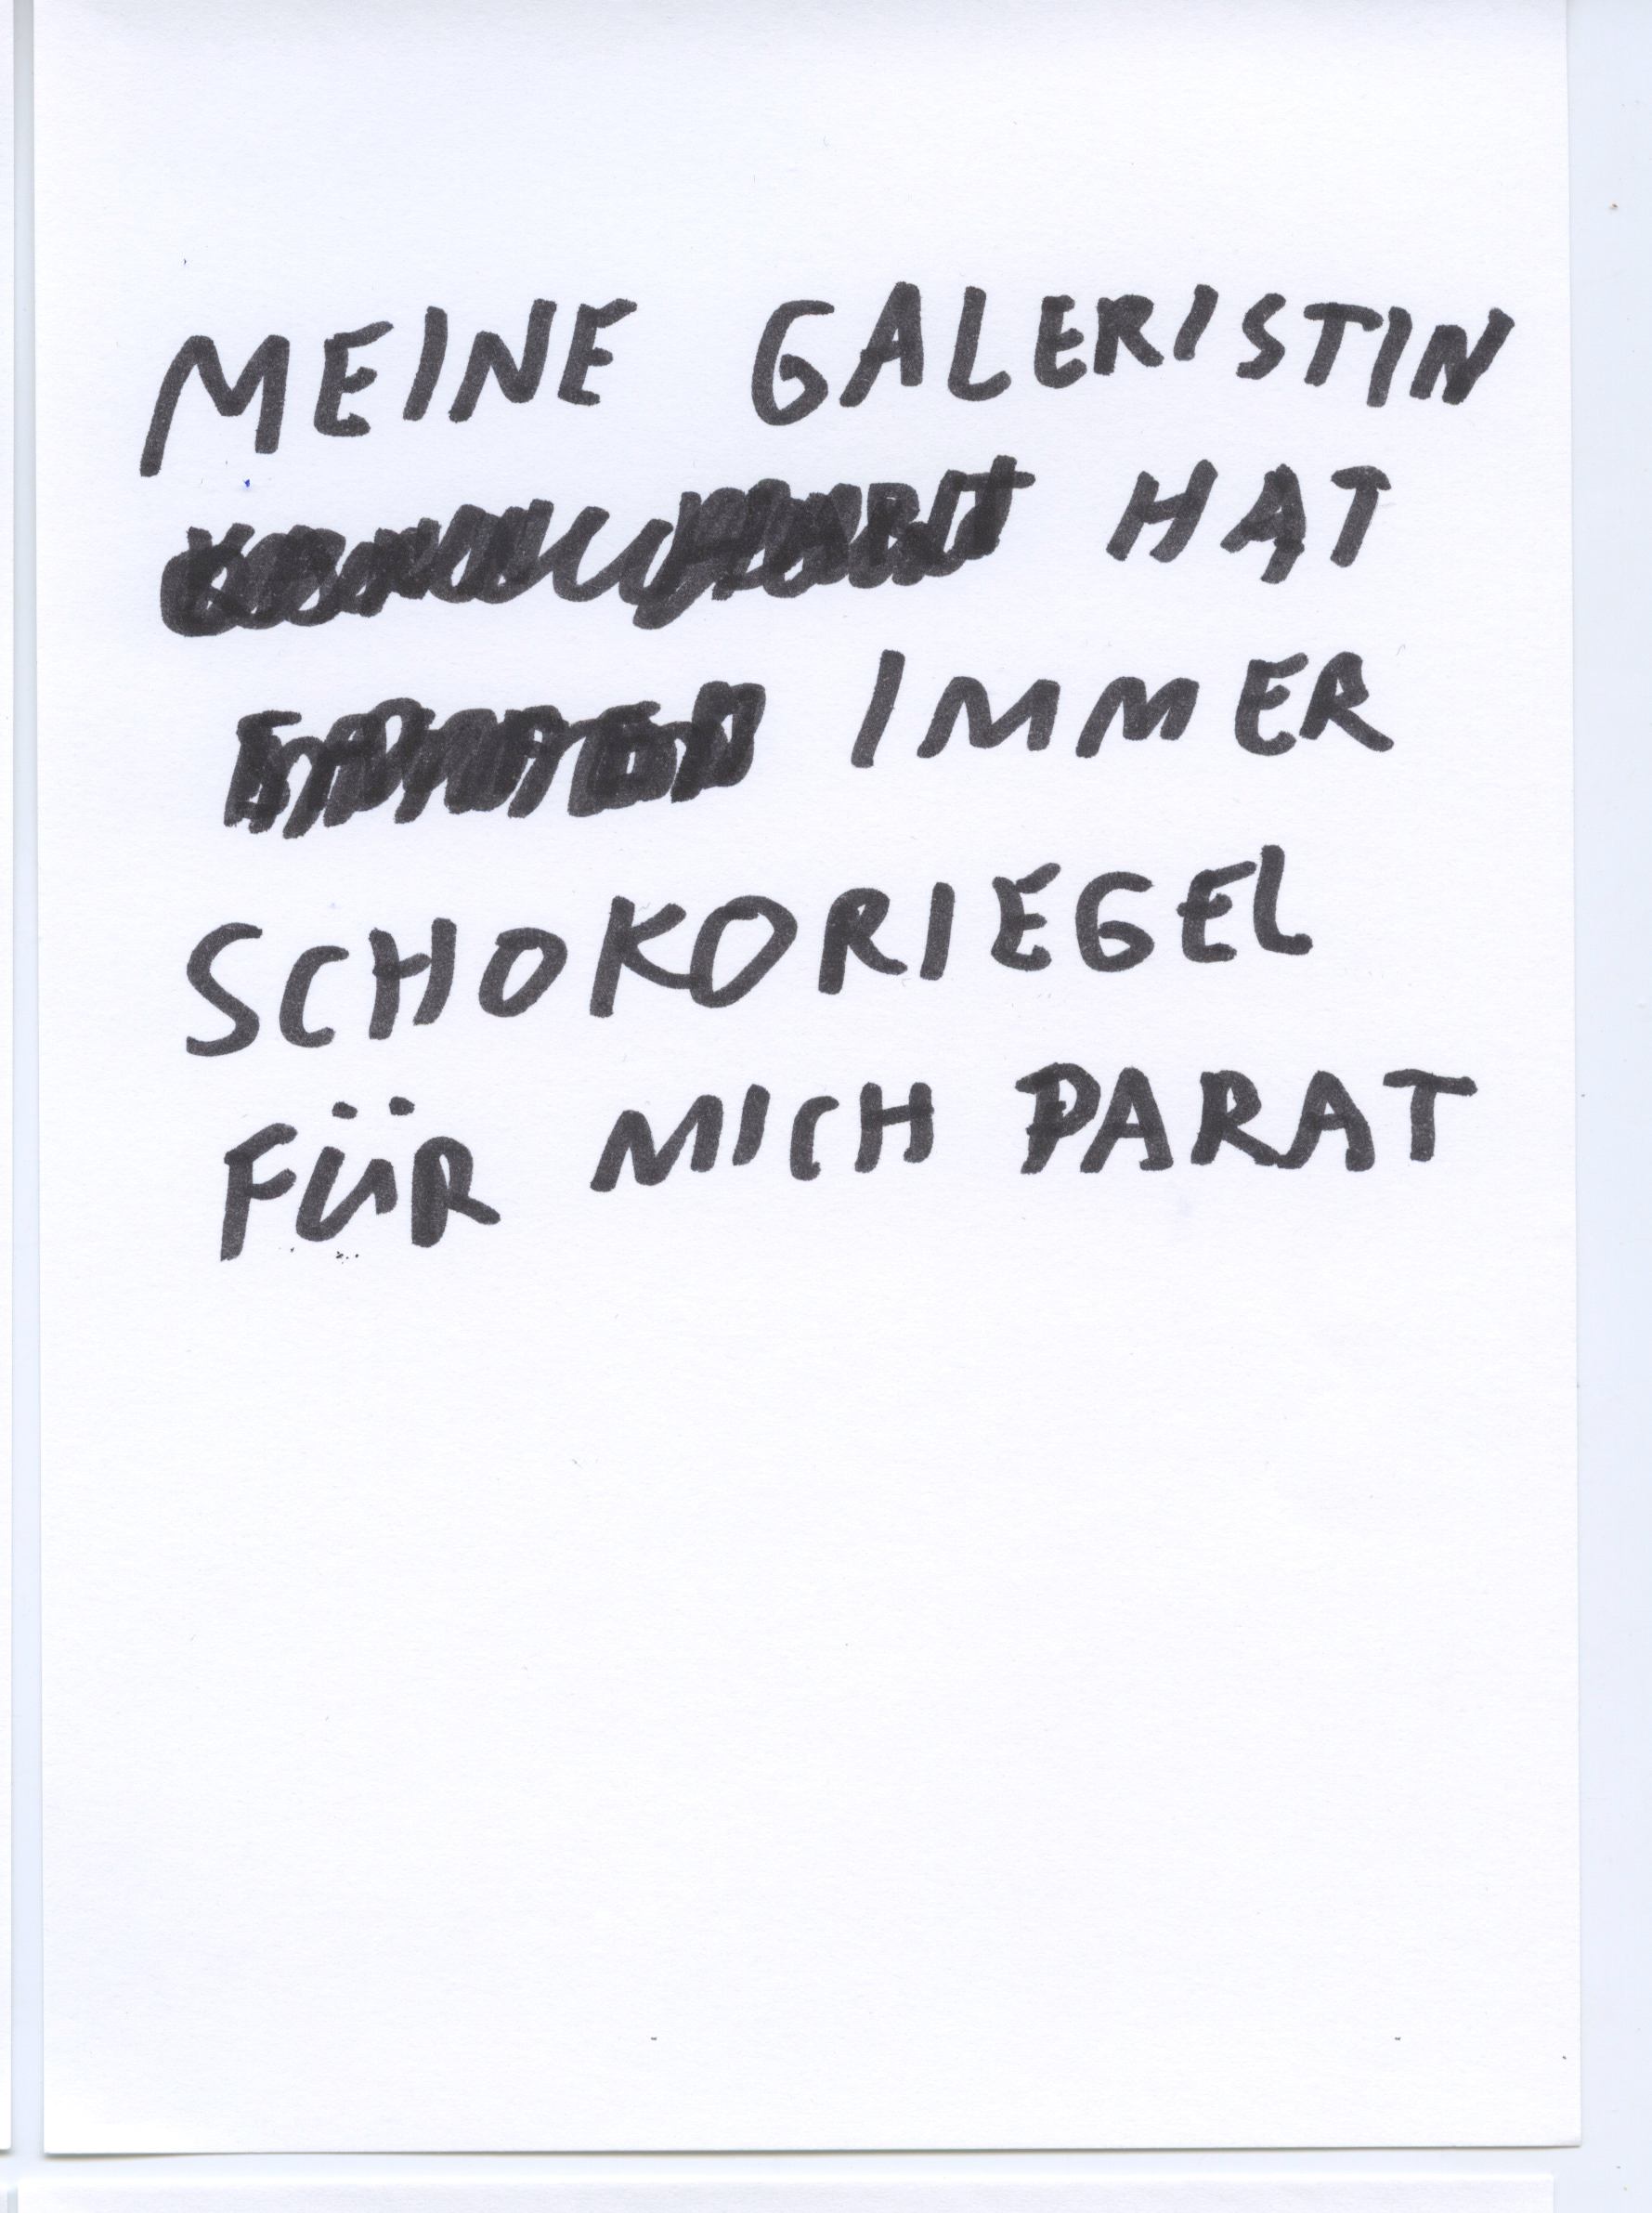 MEINE GALERISTIN
HAT
IMMER
SCHOKORIEGEL
FÜR MICH PARAT